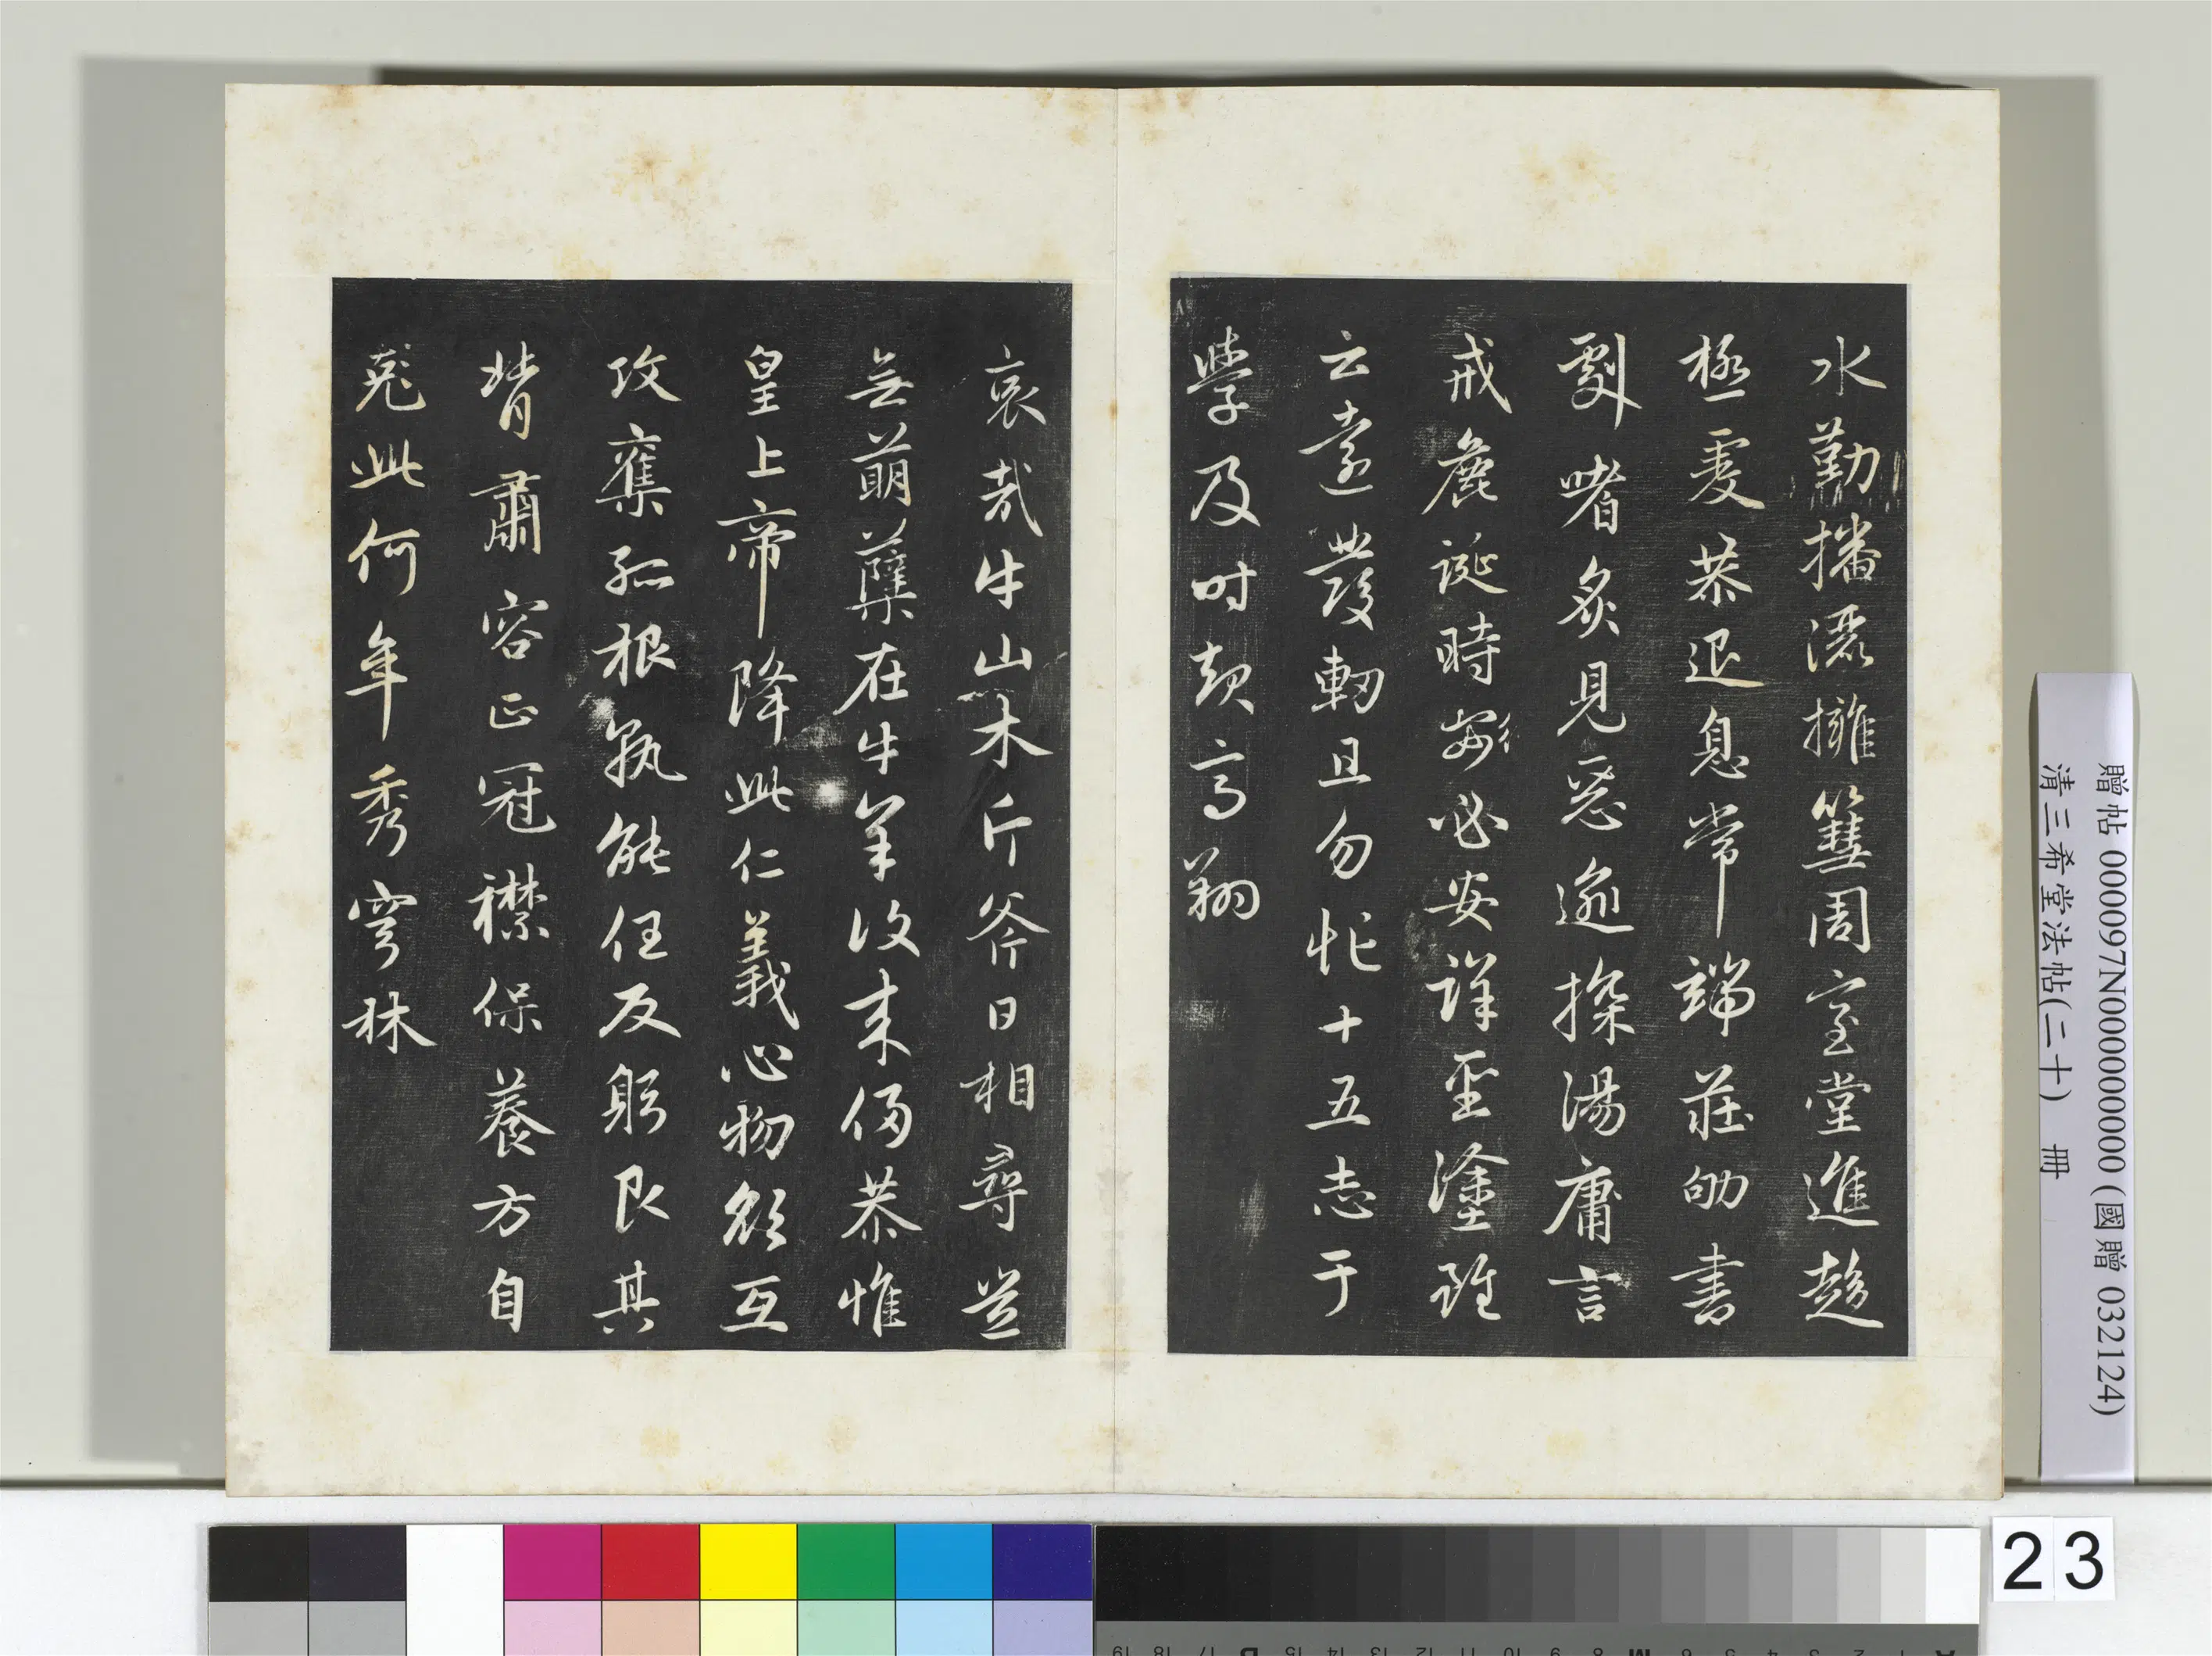 水勤播灑擁篲周室堂進趨
極虔恭退息常端莊劬書
劇嗜炙見惡逾探湯庸言
戒麁誕時行必安詳聖塗雖
云遠發軔且勿忙十五志于
學及时起高翔
哀哉牛山木斤斧日相尋豈
無萌蘖在牛羊復來侵恭惟
皇上帝降此仁義心物欲互
攻奪孤根孰能任反躬艮其
背肅容正冠襟保養方自
此何年秀穹林
贈帖 000097N000000000 (國贈 032124)
清三希堂法帖(二十) 冊
23